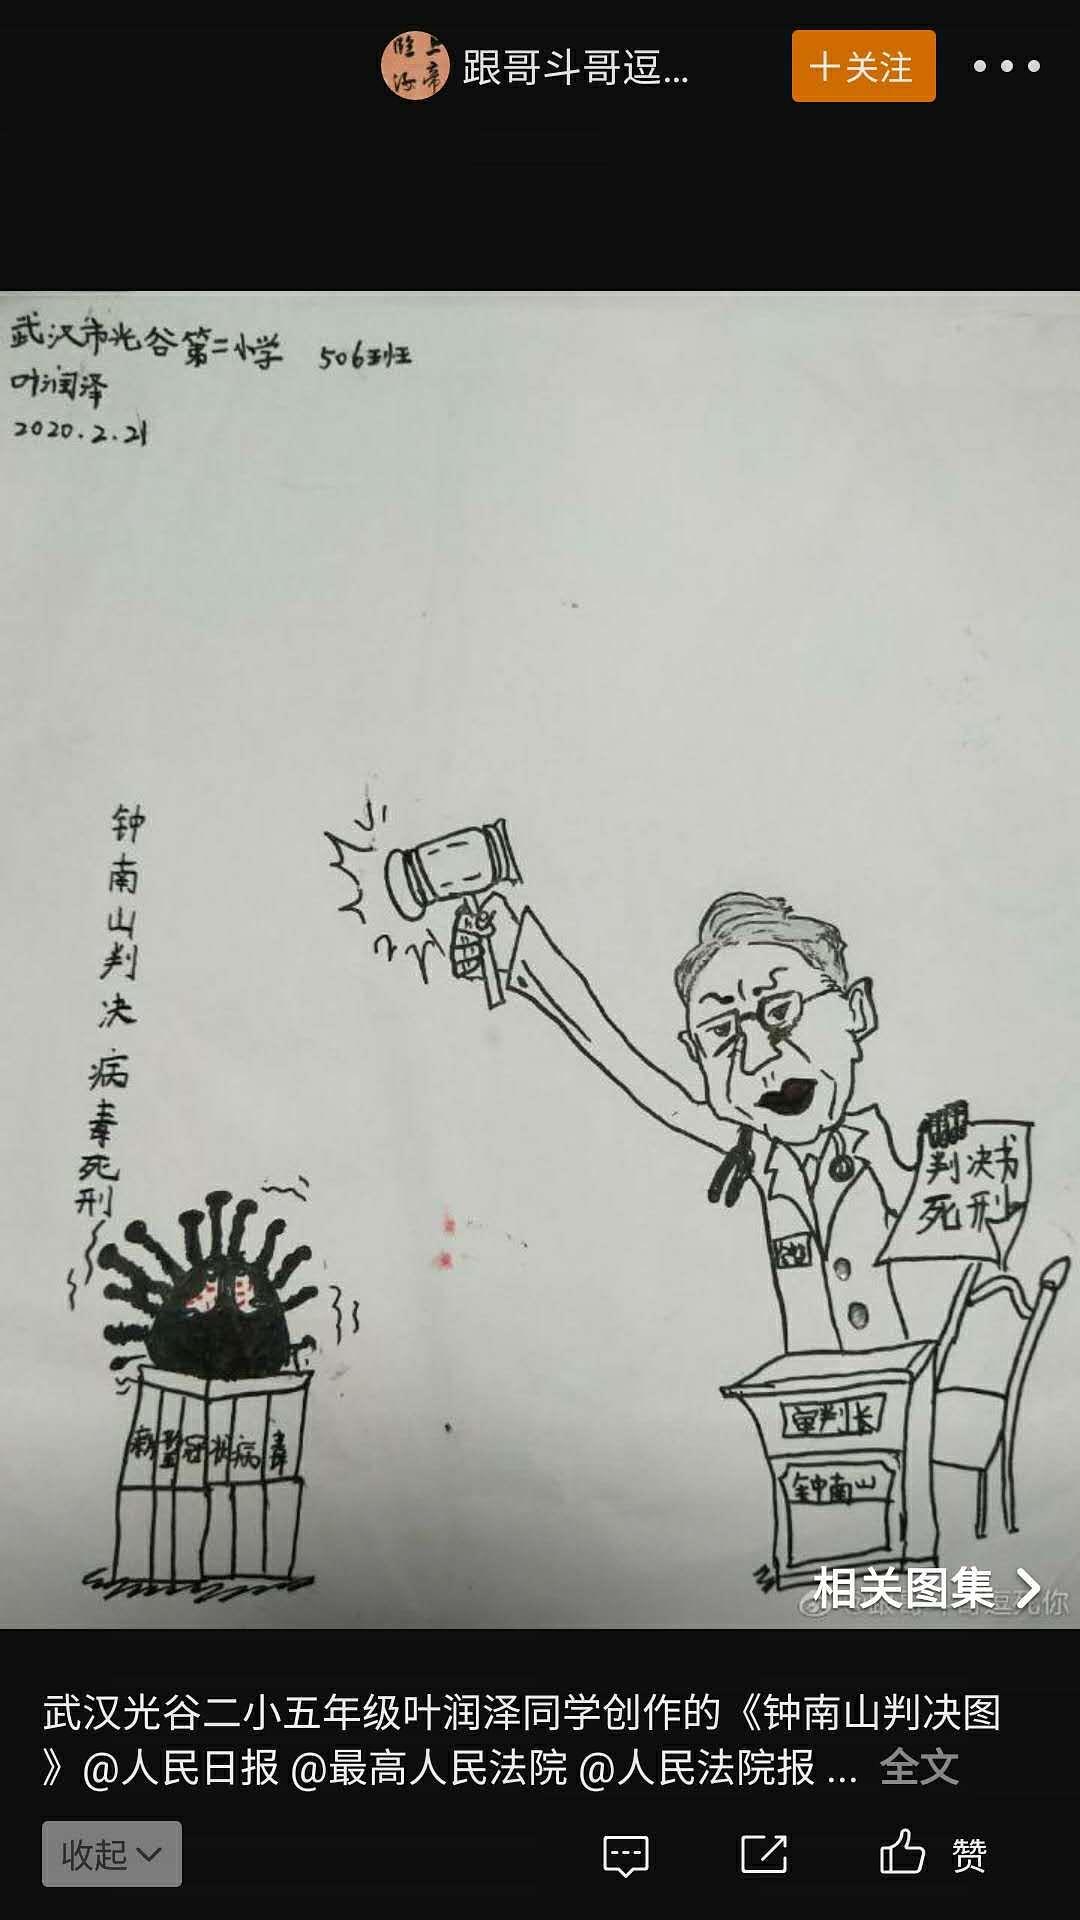 跟哥斗哥逗...
十关注
武汉市光谷第二小学 506班
叶润泽
2020.2.21
钟南山判决病毒死刑
判决书
死刑
新型冠状病毒
审判长
钟南山
相关图集
武汉光谷二小五年级叶润泽同学创作的《钟南山判决图
》@人民日报 @最高人民法院 @人民法院报 ... 全文
收起
赞